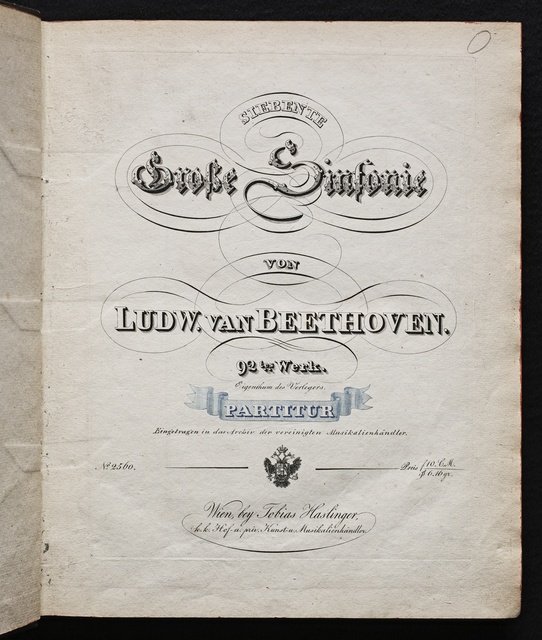 SIEBENTE
Große Sinfonie
VON
LUDW. VAN BEETHOVEN.
92tes Werk.
Eigenthum des Verlegers.
PARTITUR
Eingetragen in das Archiv der vereinigten Musikalienhändler.
No 2560.
Preis f 10. C.M.
Wien, bey Tobias Haslinger,
k.k. Hof- u. priv. Kunst- u. Musikalienhändler